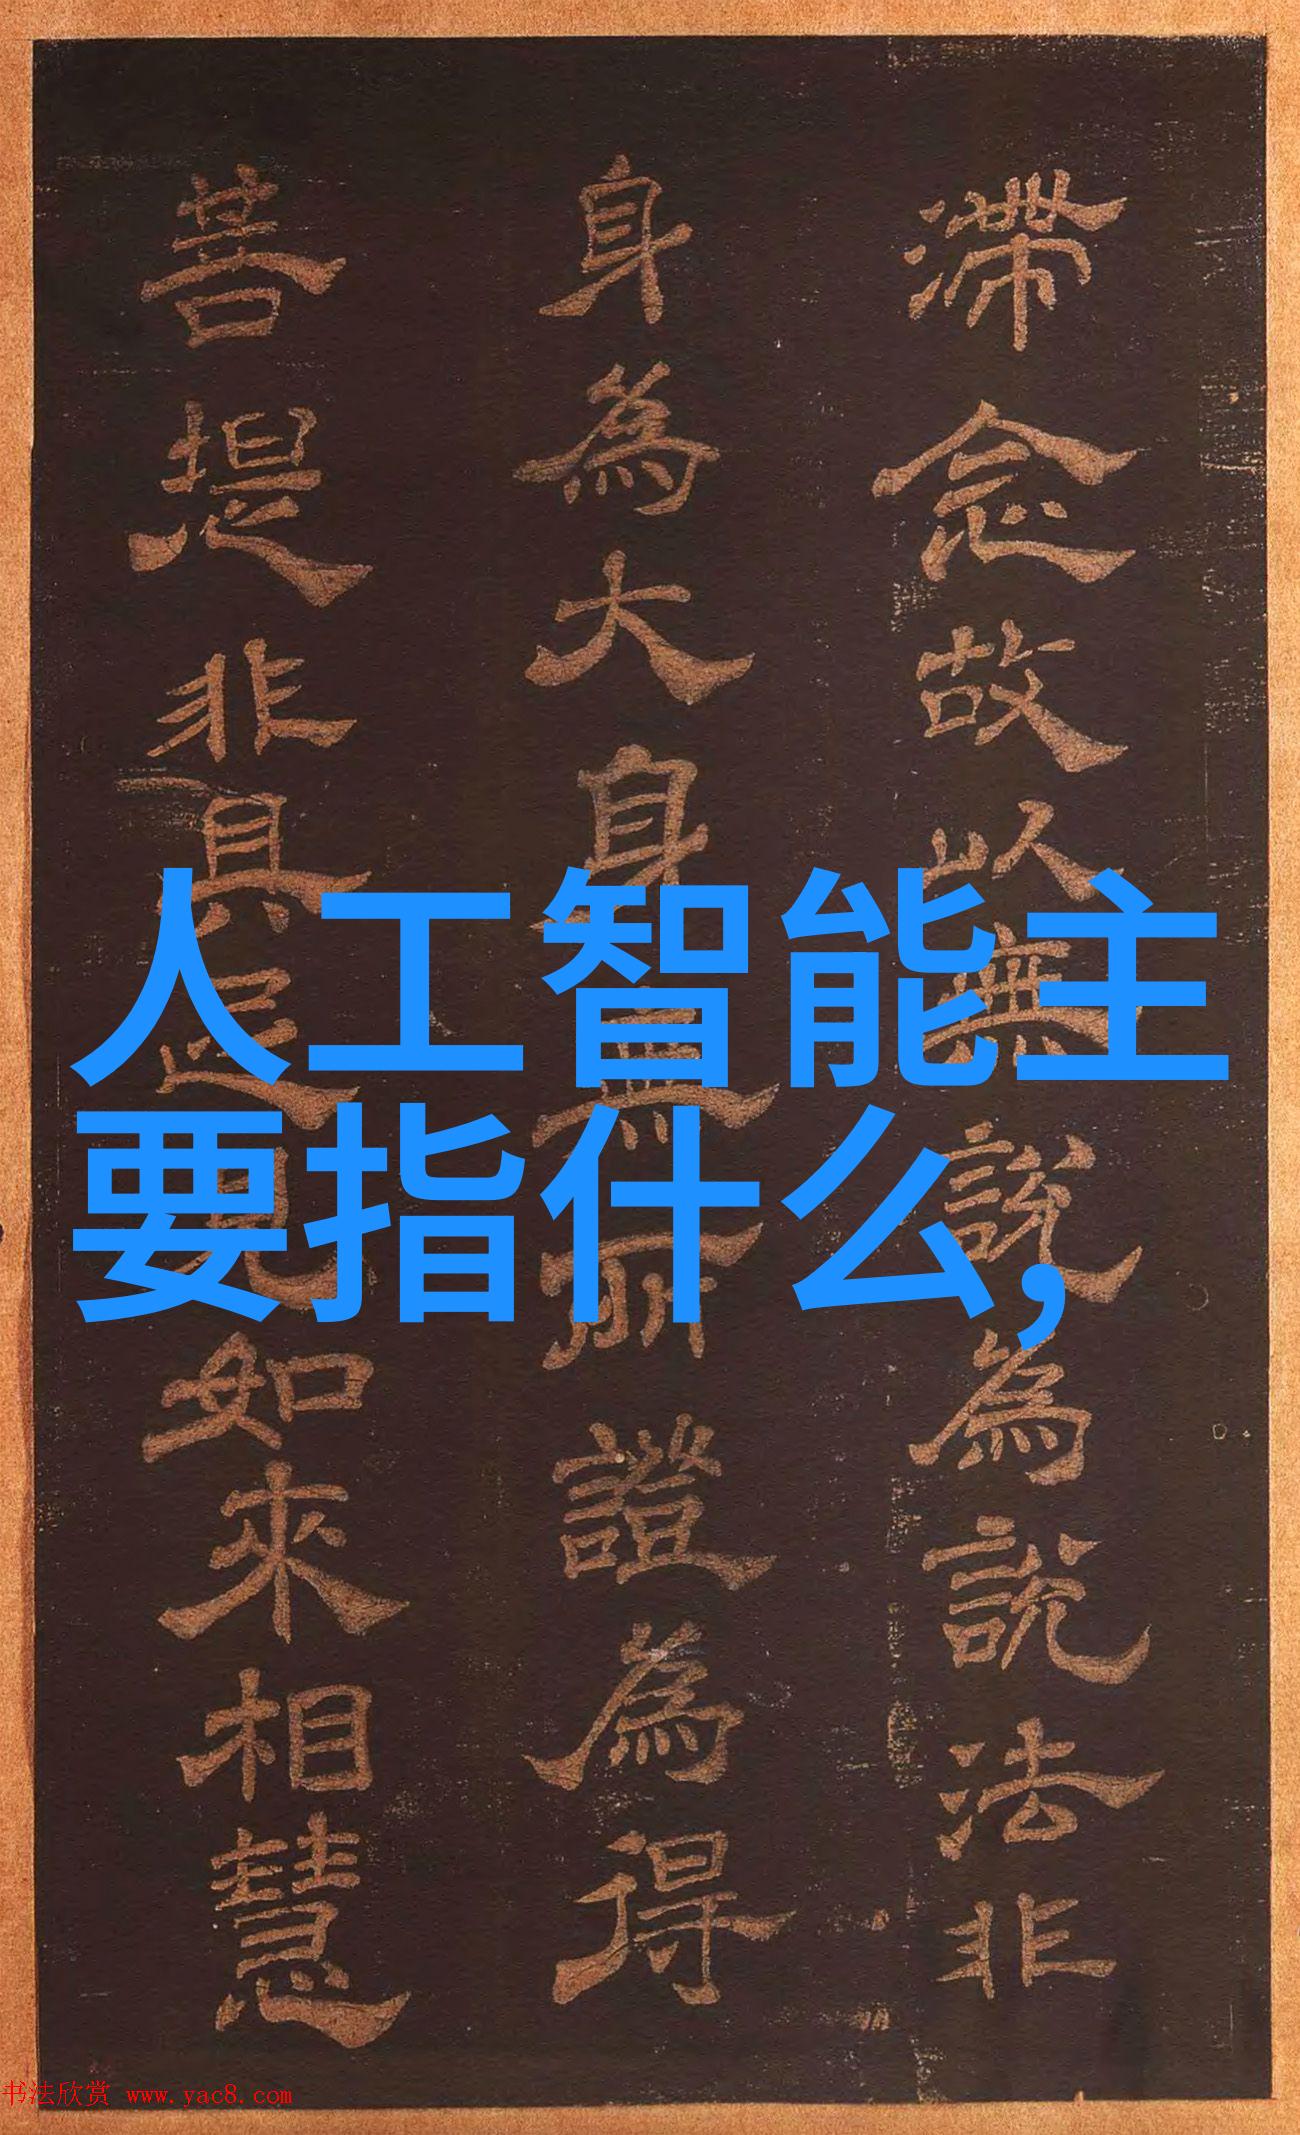 滞念故以無說為說法非
身為大身無所證為得
菩提非具足見如來相慧
人工智能主
要指什么,
书法欣赏 www.yac8.com